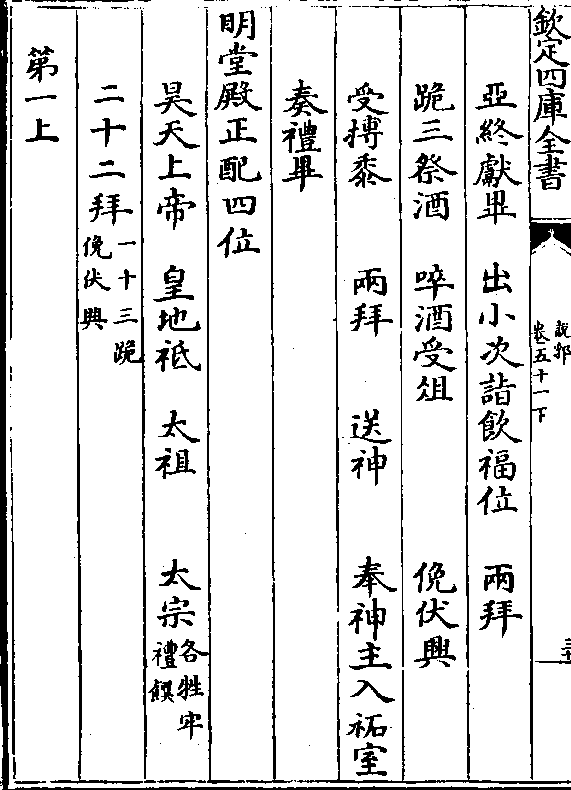 欽定四庫全書
說郛
卷五十一下
亞終獻畢 出小次詣飲福位 兩拜
跪三祭酒 啐酒受俎 俛伏興
受摶黍 兩拜 送神 奉神主入祏室
奏禮畢
明堂殿正配四位
昊天上帝 皇地祇 太祖 太宗各牲牢禮饌
二十二拜一十三跪俛伏興
第一上